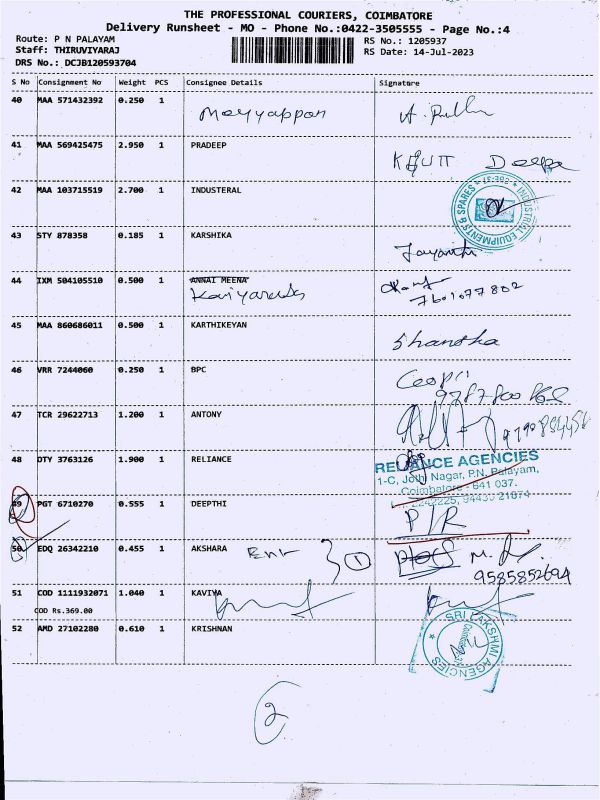 THE PROFESSIONAL COURIERS, COIMBATORE
Delivery Runsheet - MO - Phone No.:0422-3505555 - Page No.:4
Route: P N PALAYAM
RS No.: 1205937
Staff: THIRUVIYARAJ
RS Date: 14-Jul-2023
DRS No.: DCJB120593704
S No Consignment No Weight PCS Consignee Details Signature
40 MAA 571432392 0.250 1 Meyyappan
41 MAA 569425475 2.950 1 PRADEEP Deepa
42 MAA 103715519 2.700 1 INDUSTERAL
INDUSTRIAL EQUIPMENTS & SPARES
43 STY 878358 0.185 1 KARSHIKA Jayanthi
44 IXM 504105510 0.500 1 ANNAI MEENA
7601077802
45 MAA 860686011 0.500 1 KARTHIKEYAN Shantha
46 VRR 7244060 0.250 1 BPC
47 TCR 29622713 1.200 1 ANTONY
48 DTY 3763126 1.900 1 RELIANCE
RELIANCE AGENCIES
1-C, Jothi Nagar, P.N. Palayam,
Coimbatore - 641 037.
49 PGT 6710270 0.555 1 DEEPTHI P/R
50 EDQ 26342210 0.455 1 AKSHARA 1
9585852694
51 COD 1111932071 1.040 1 KAVIYA
COD Rs.369.00
52 AMD 27102280 0.610 1 KRISHNAN
SRI LAKSHMI AGENCIES
2